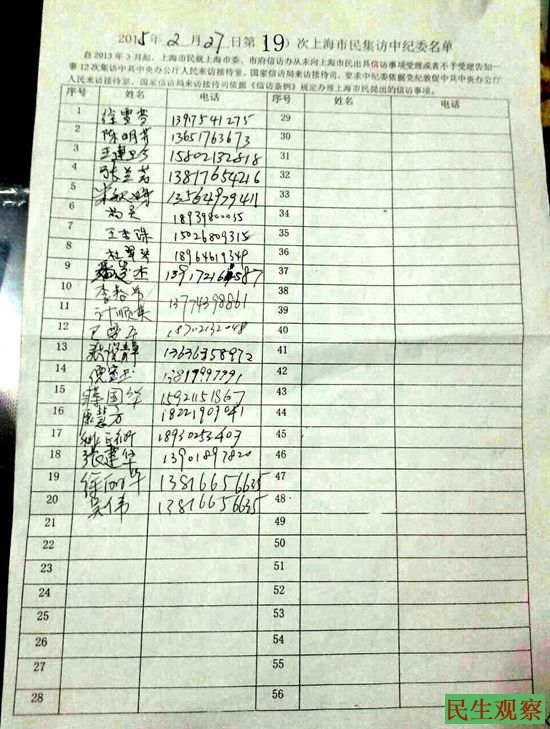 2015年2月27日第(19)次上海市民集访中纪委名单
自2013年3月起,上海市民就上海市委、市府信访办从未向上海市民出具信访事项受理或者不予受理告知一
事12次集访中共中央办公厅人民来访接待室、国家信访局来访接待司,要求中纪委依据党纪敦促中共中央办公厅
人民来访接待室、国家信访局来访接待司依据《信访条例》规定办理上海市民提出的信访事项。
序号 姓名 电话 序号 姓名 电话
1 徐雪芳 13917541275 29
2 陈明芳 13651763673 30
3 15802132818 31
4 张兰英 13817654216 32
5 13564979411 33
6 18939800035 34
7 15026809315 35
8 杜翠琴 18964619349 36
9 37
10 38
11 13774398861 39
12 18702132048 40
13 13636358972 41
14 13817997791 42
15 蒋国华 15921151867 43
16 18221909041 44
17 18930253407 45
18 张建华 13901897820 46
19 徐丽华 13816656635 47
20 吴伟 13816656635 48
21 49
22 50
23 51
24 52
25 53
26 54
27 55
28 56
民生观察